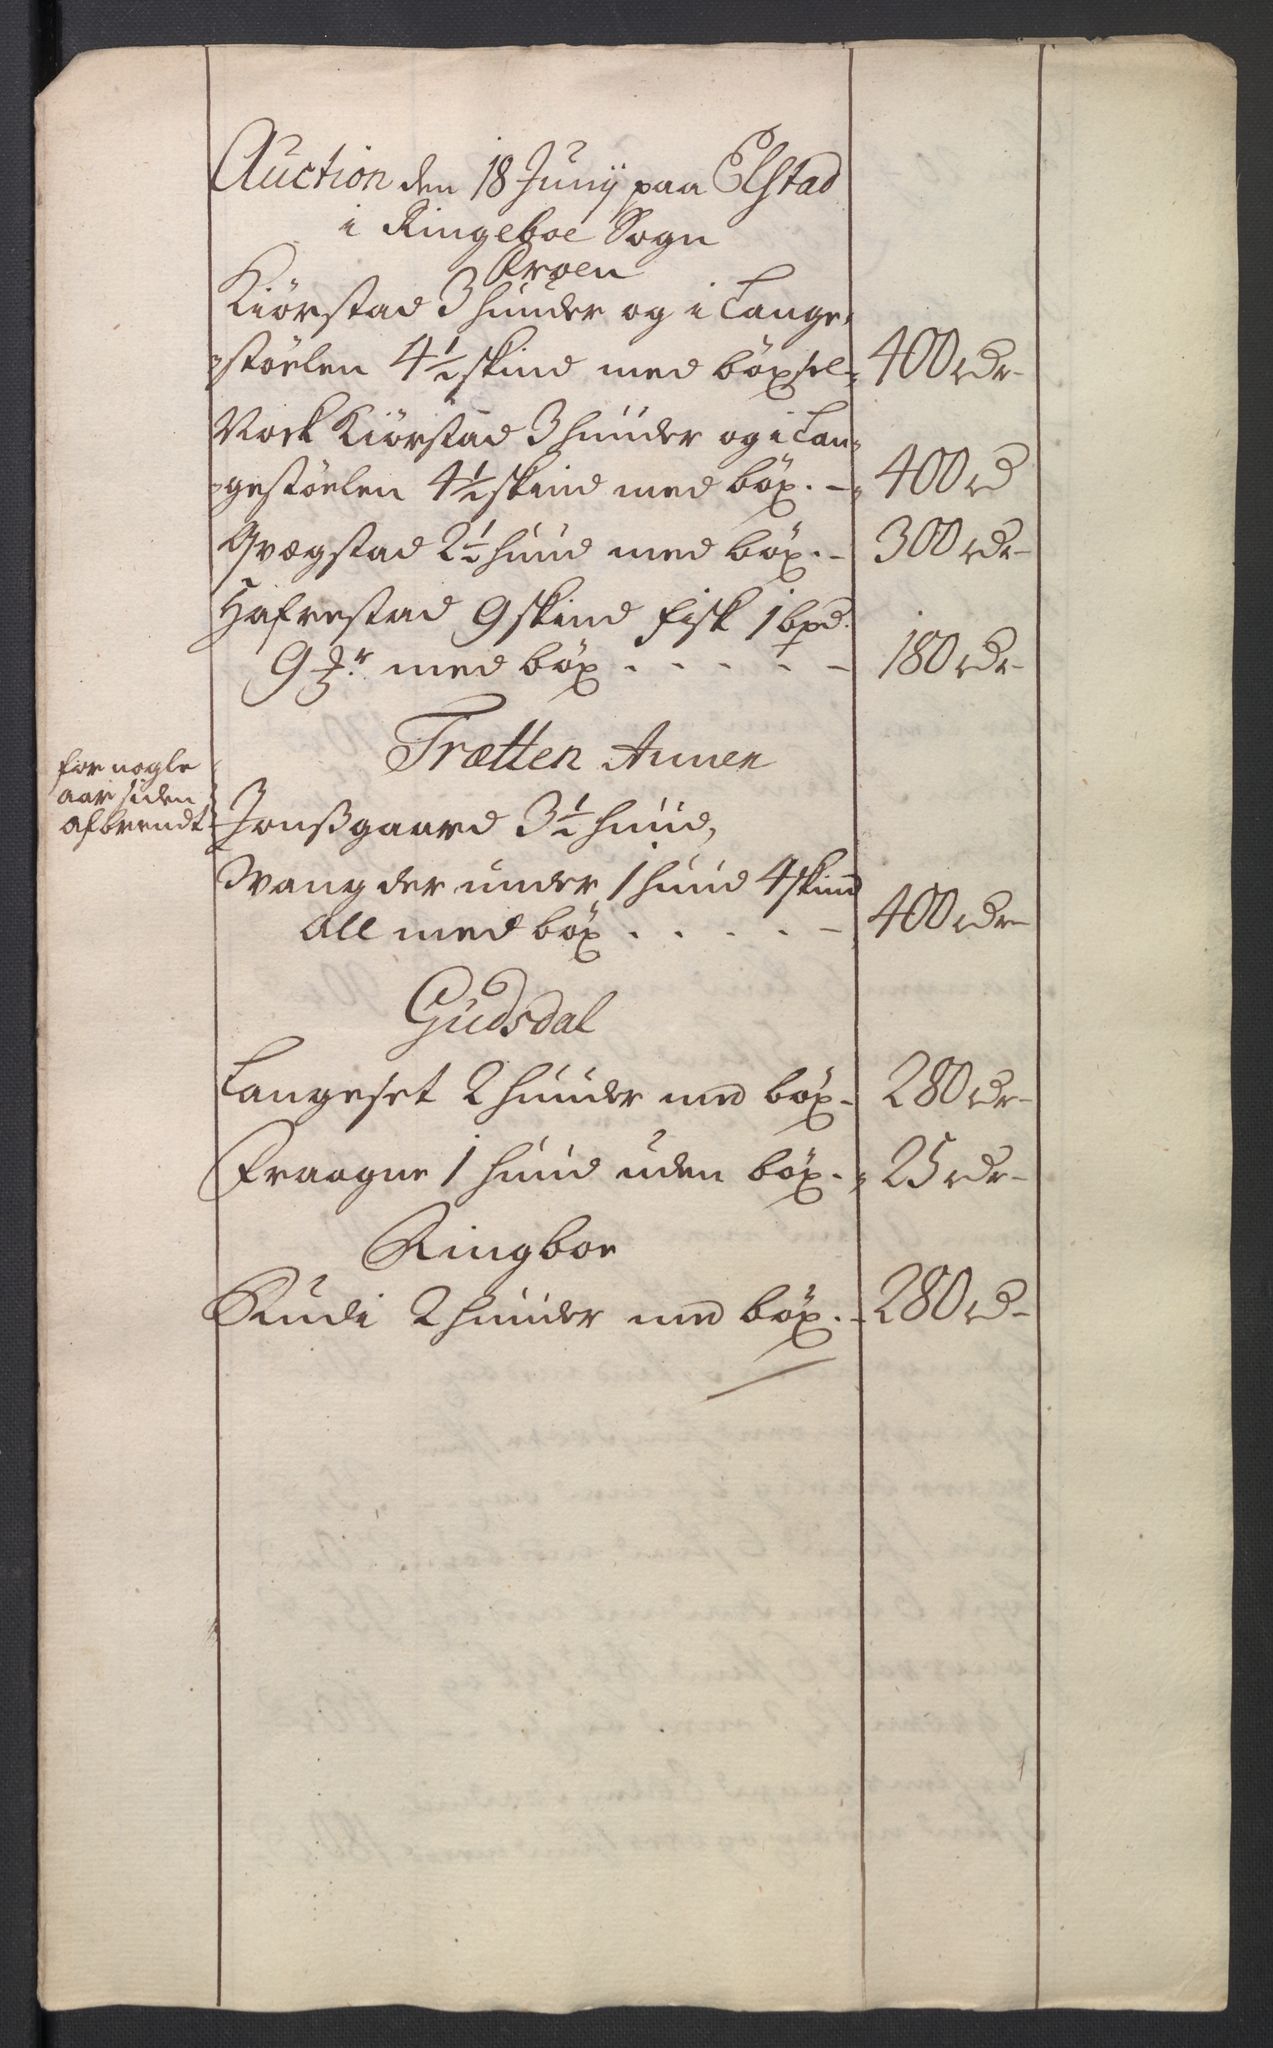 Auction den 18 Junij paa Elstad
i Ringeboe Sogn
Kiørstad 3 hunder og i Lange-
støelen 4½ skind med böxsel 400 rdr
Nork Kiørstad 3 hunder og i Lan-
gestøelen 4½ skind med böx. 400 rd
Qvægstad 2½ hund med böx. 300 rdr
Hafrestad 9 skind fisk 1 bpd.
9 med böx 180 rdr
Trætten Annex
for nogle
aar siden
afbrendt
Jonsgaard 3½ hund,
Wang der under 1 hund 4 skind
All med böx 400 rdr
Gudsdal
Langeset 2 hunder med böx. 280 rdr
Fraagne 1 hund uden böx. 25 rdr
Ringboe
Rudi 2 hunder med böx. 280 rd